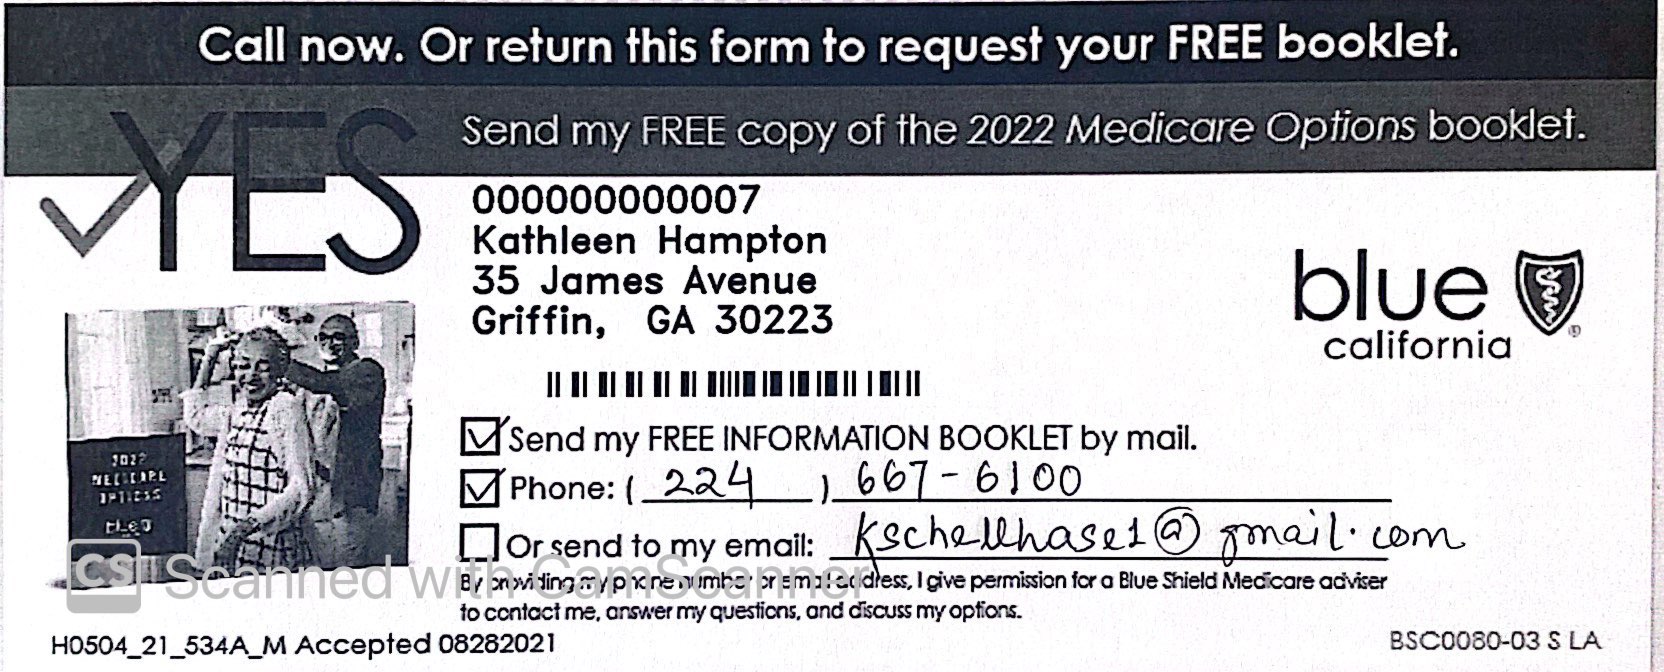 Call now. Or return this form to request your FREE booklet.
YES
Send my FREE copy of the 2022 Medicare Options booklet.
000000000007
Kathleen Hampton
35 James Avenue
Griffin, GA 30223
blue
california
Send my FREE INFORMATION BOOKLET by mail.
Phone: ( 224 ) 667-6100
Or send to my email: kschellhase1@gmail.com
By providing my phone number or email address, I give permission for a Blue Shield Medicare adviser
to contact me, answer my questions, and discuss my options.
2022
MEDICARE
OPTIONS
CS Scanned with CamScanner
H0504_21_534A_M Accepted 08282021
BSC0080-03 S LA